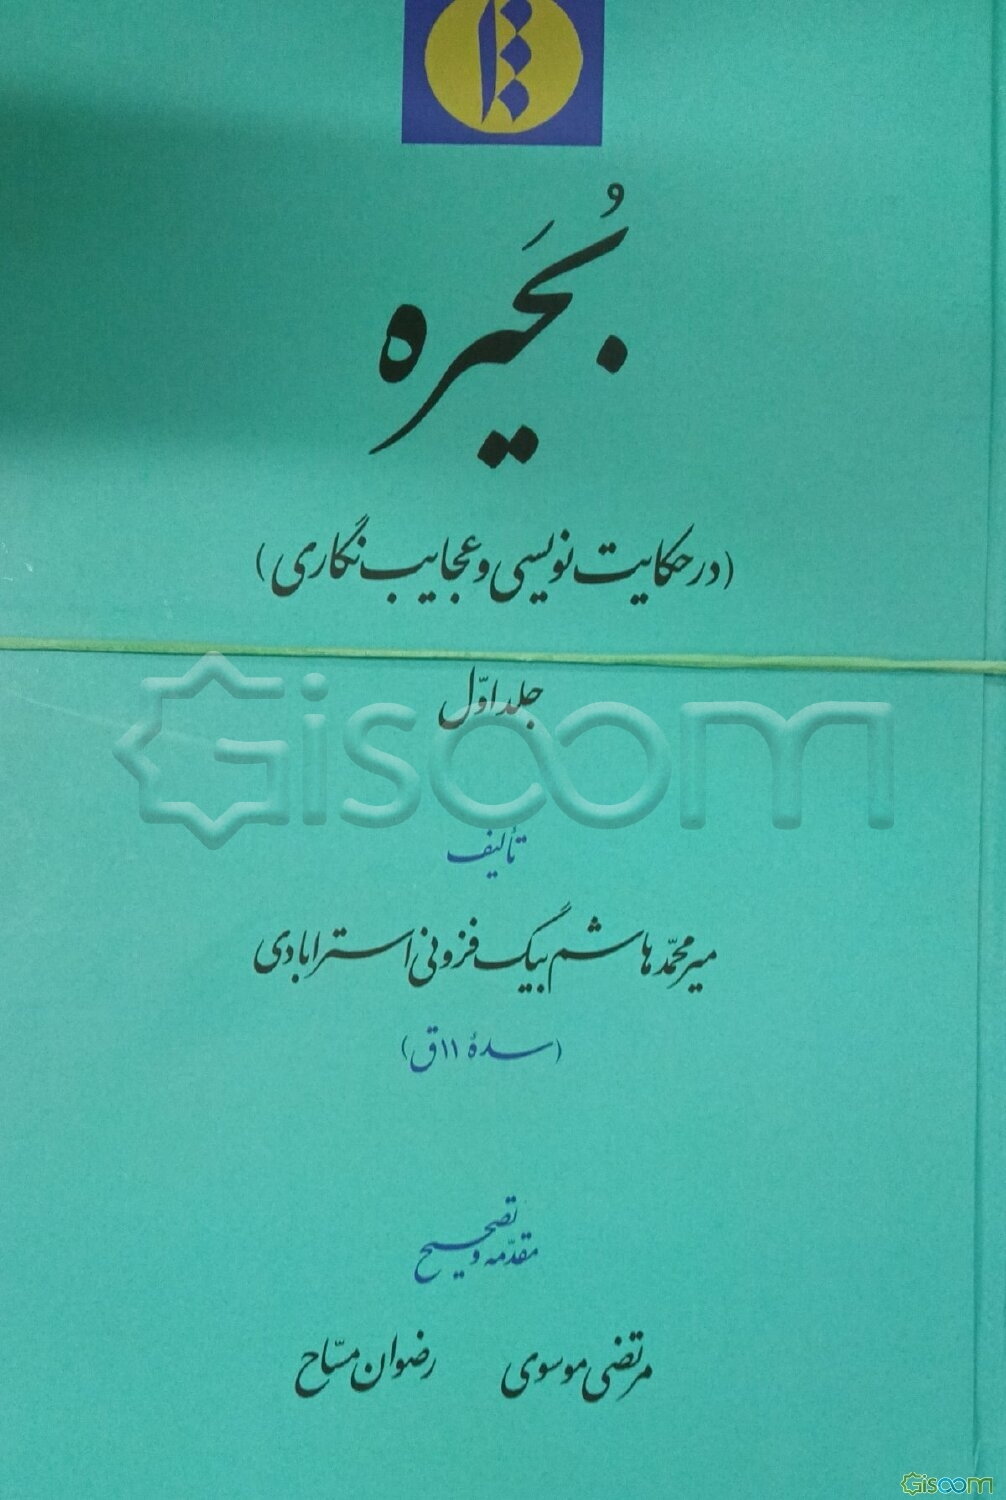 بُحَیره
(در حکایت نویسی و عجایب نگاری)
جلد اوّل
Gisoom
تألیف
میر محمّد هاشم بیگ فزونی استرابادی
(سدهٔ ۱۱ق)
مقدّمه و تصحیح
مرتضی موسوی رضوان مسّاح
Gisoom